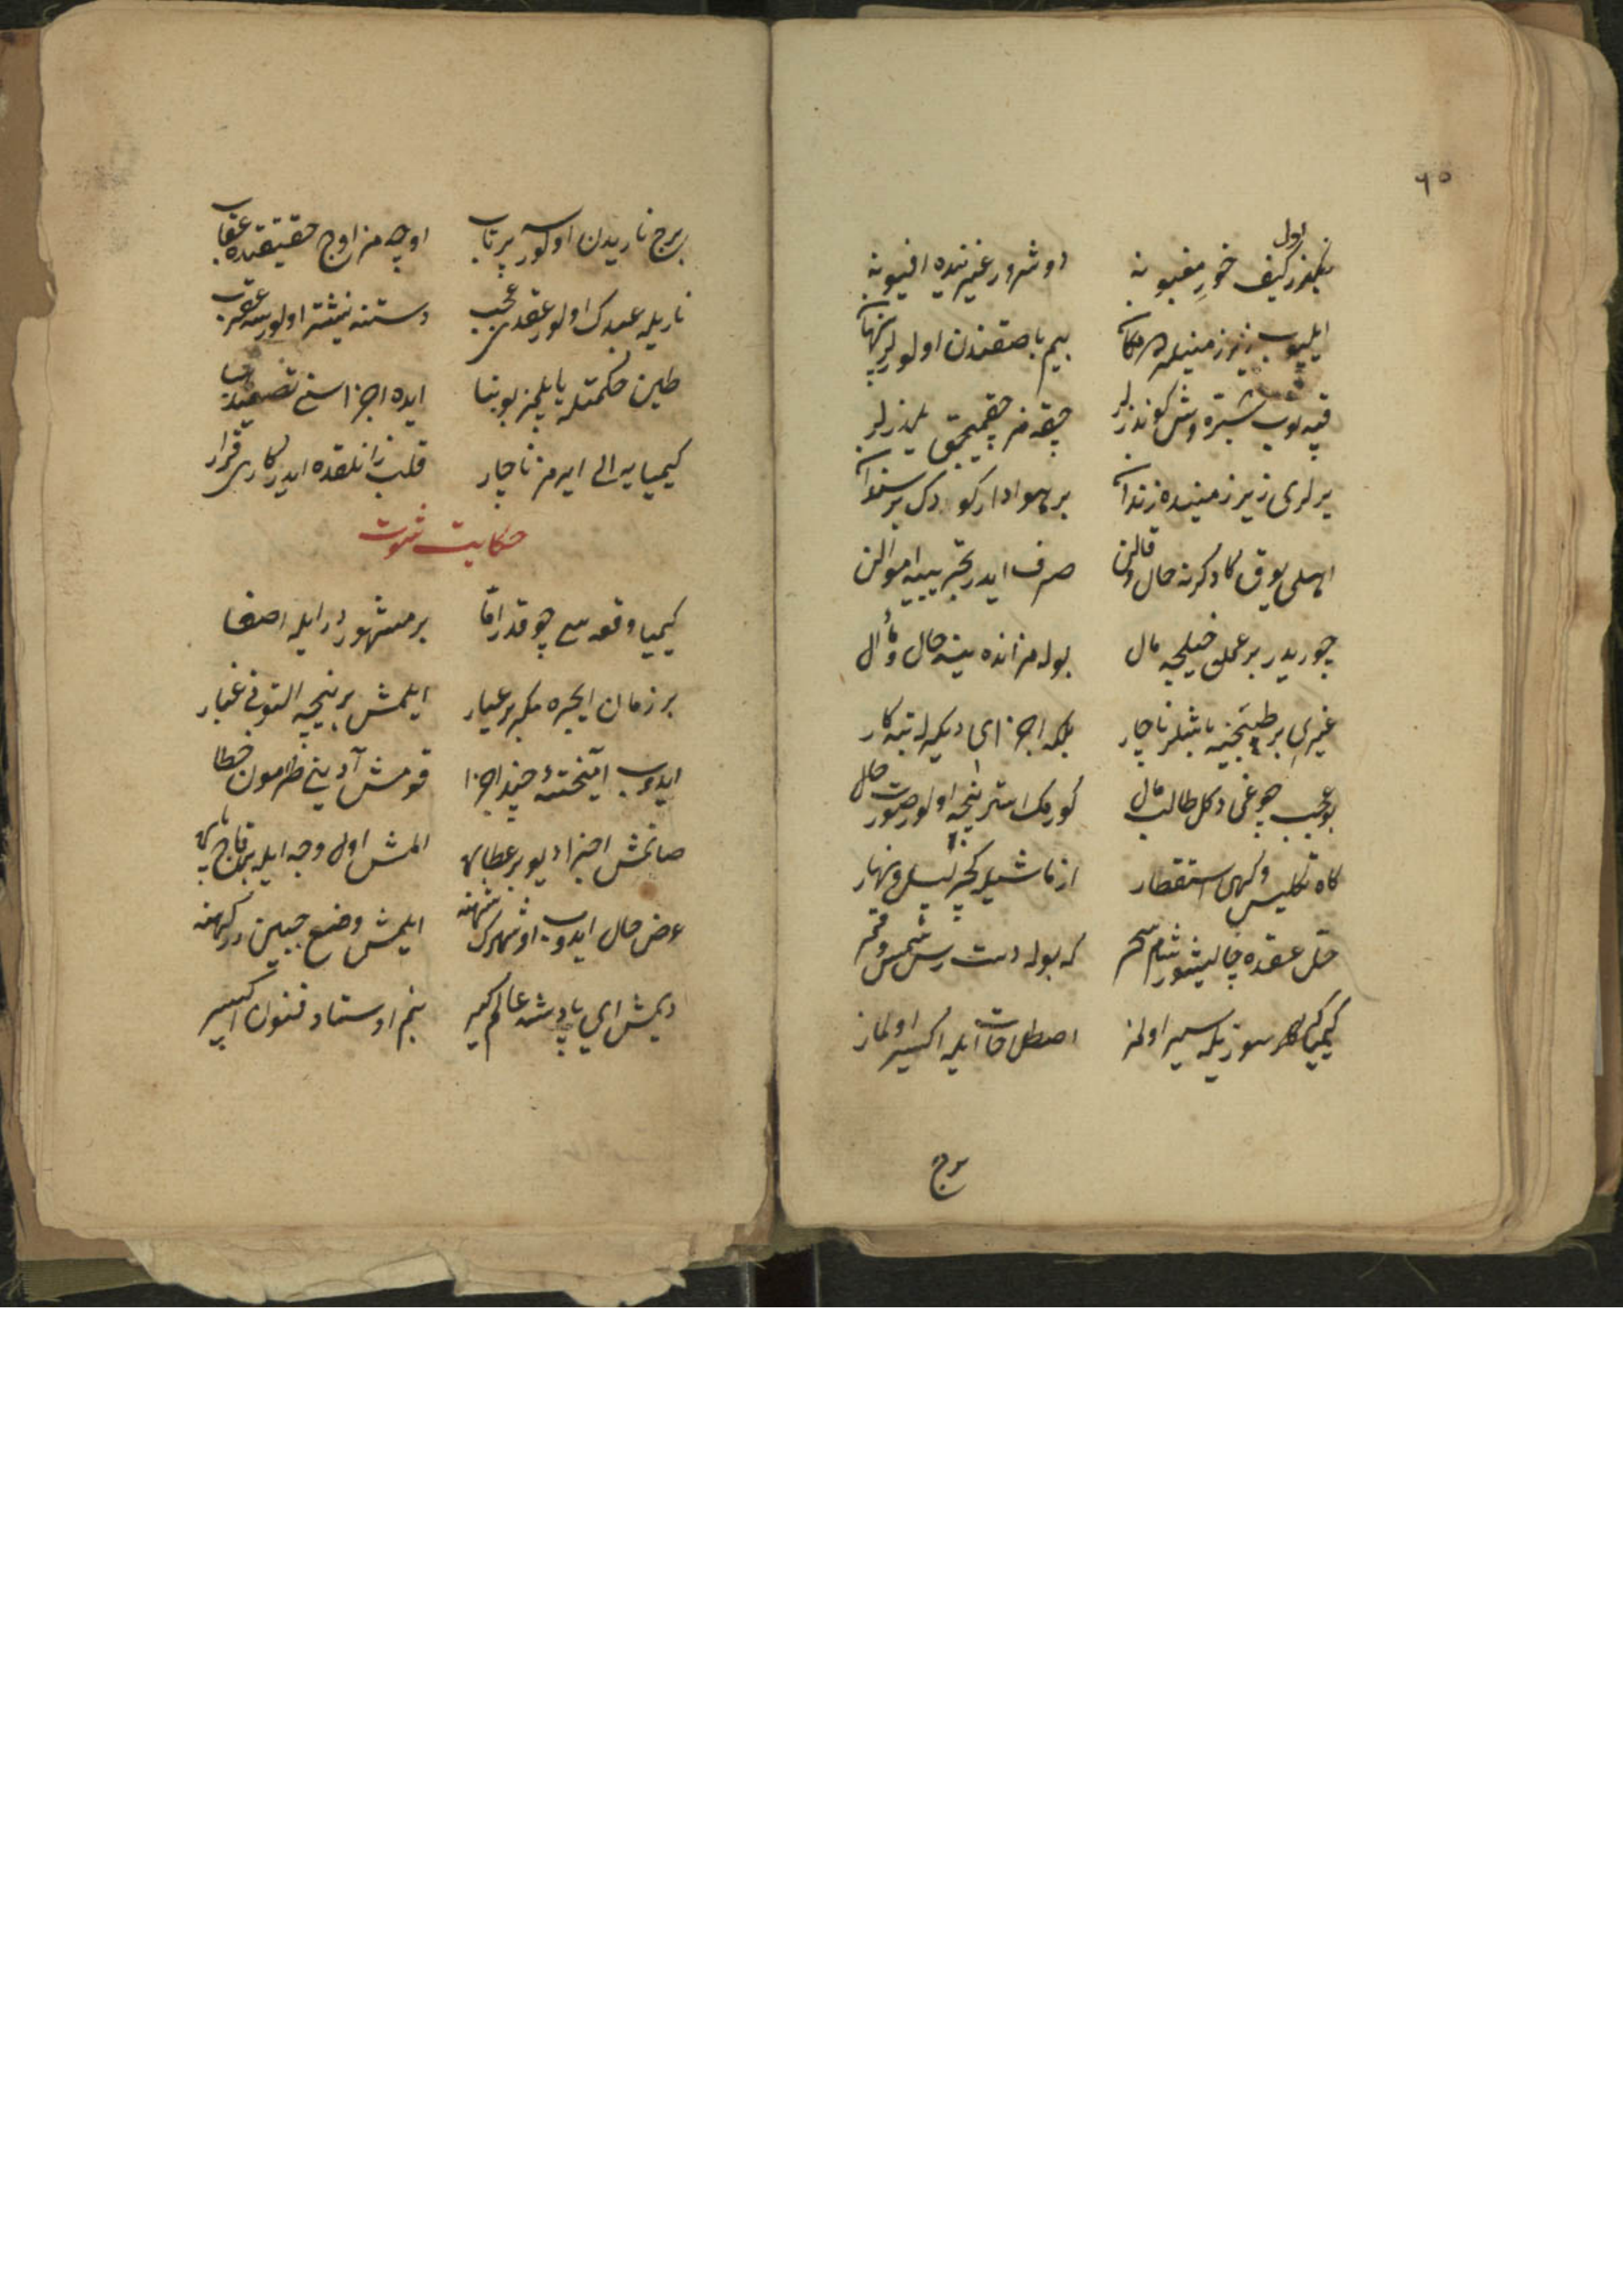 ٦٥
بکزر کیف خور مغبونه اول دوشرور غیریده افیونه
ایلیوب زیر زمینله مکان بیم باصقندن اولورلر پنهان
قپه یوب شبپره وش کوندزلر چیقه مز چیقمیجق یلدزلر
یرلری زیر زمینده زندان بر هوادار کورک سندان
اهلی یوق کاه کرنه حال و قالن صرف ایدر تجربه‌یه اموالن
چوریدر بر عملی خیلیجه مال بوله مز انده ینه حال و مآل
غیری بر طبخنه باشلر ناچار بلکه اجزای دیکرله تبه کار
بو عجب چوغی دکل طالب مال کورمک استر نیجه اولور صورت حال
کاه تکلیس و کهی استقطار ازماشیله کچر لیل و نهار
حل عقده چالیشور شام سحر که بوله دست رس شمس و قمر
کیمیا بر سوزیکه سیر اولمز اصطلاحات ایله اکسیر اولماز
برج
برج ناریدن اولور سه پرتاب اوچه مز اوج حقیقتده عقاب
ناریله عبدک اولور عقدی عجب دستنه نیشتر اولورسه عقرب
طین حکمتله یاپلمز بو بنا ایده اجزاسنی تصعید
کیمیایه الی ایرمز ناچار قلب زانلقده ایدر کاری قرار
حکایت شوت
کیمیا وقعه سی چوقدر اما بر مشهوردر ایله اصغا
بر زمان ایچره مکر بر عیار ایلمش بر نیجه التونی غبار
ایدوب آمیخته چند اجزا قومش آدینی طرمون خطا
صاتمش اجزا دیو بر عطاره المش اول وجه ایله بر قاچ پاره
عرض حال ایدوب او شهرک شهنه ایلمش وضع جبین درکهنه
دیمش ای پادشه عالم کیر بنم اوستاد فنون اکسیر